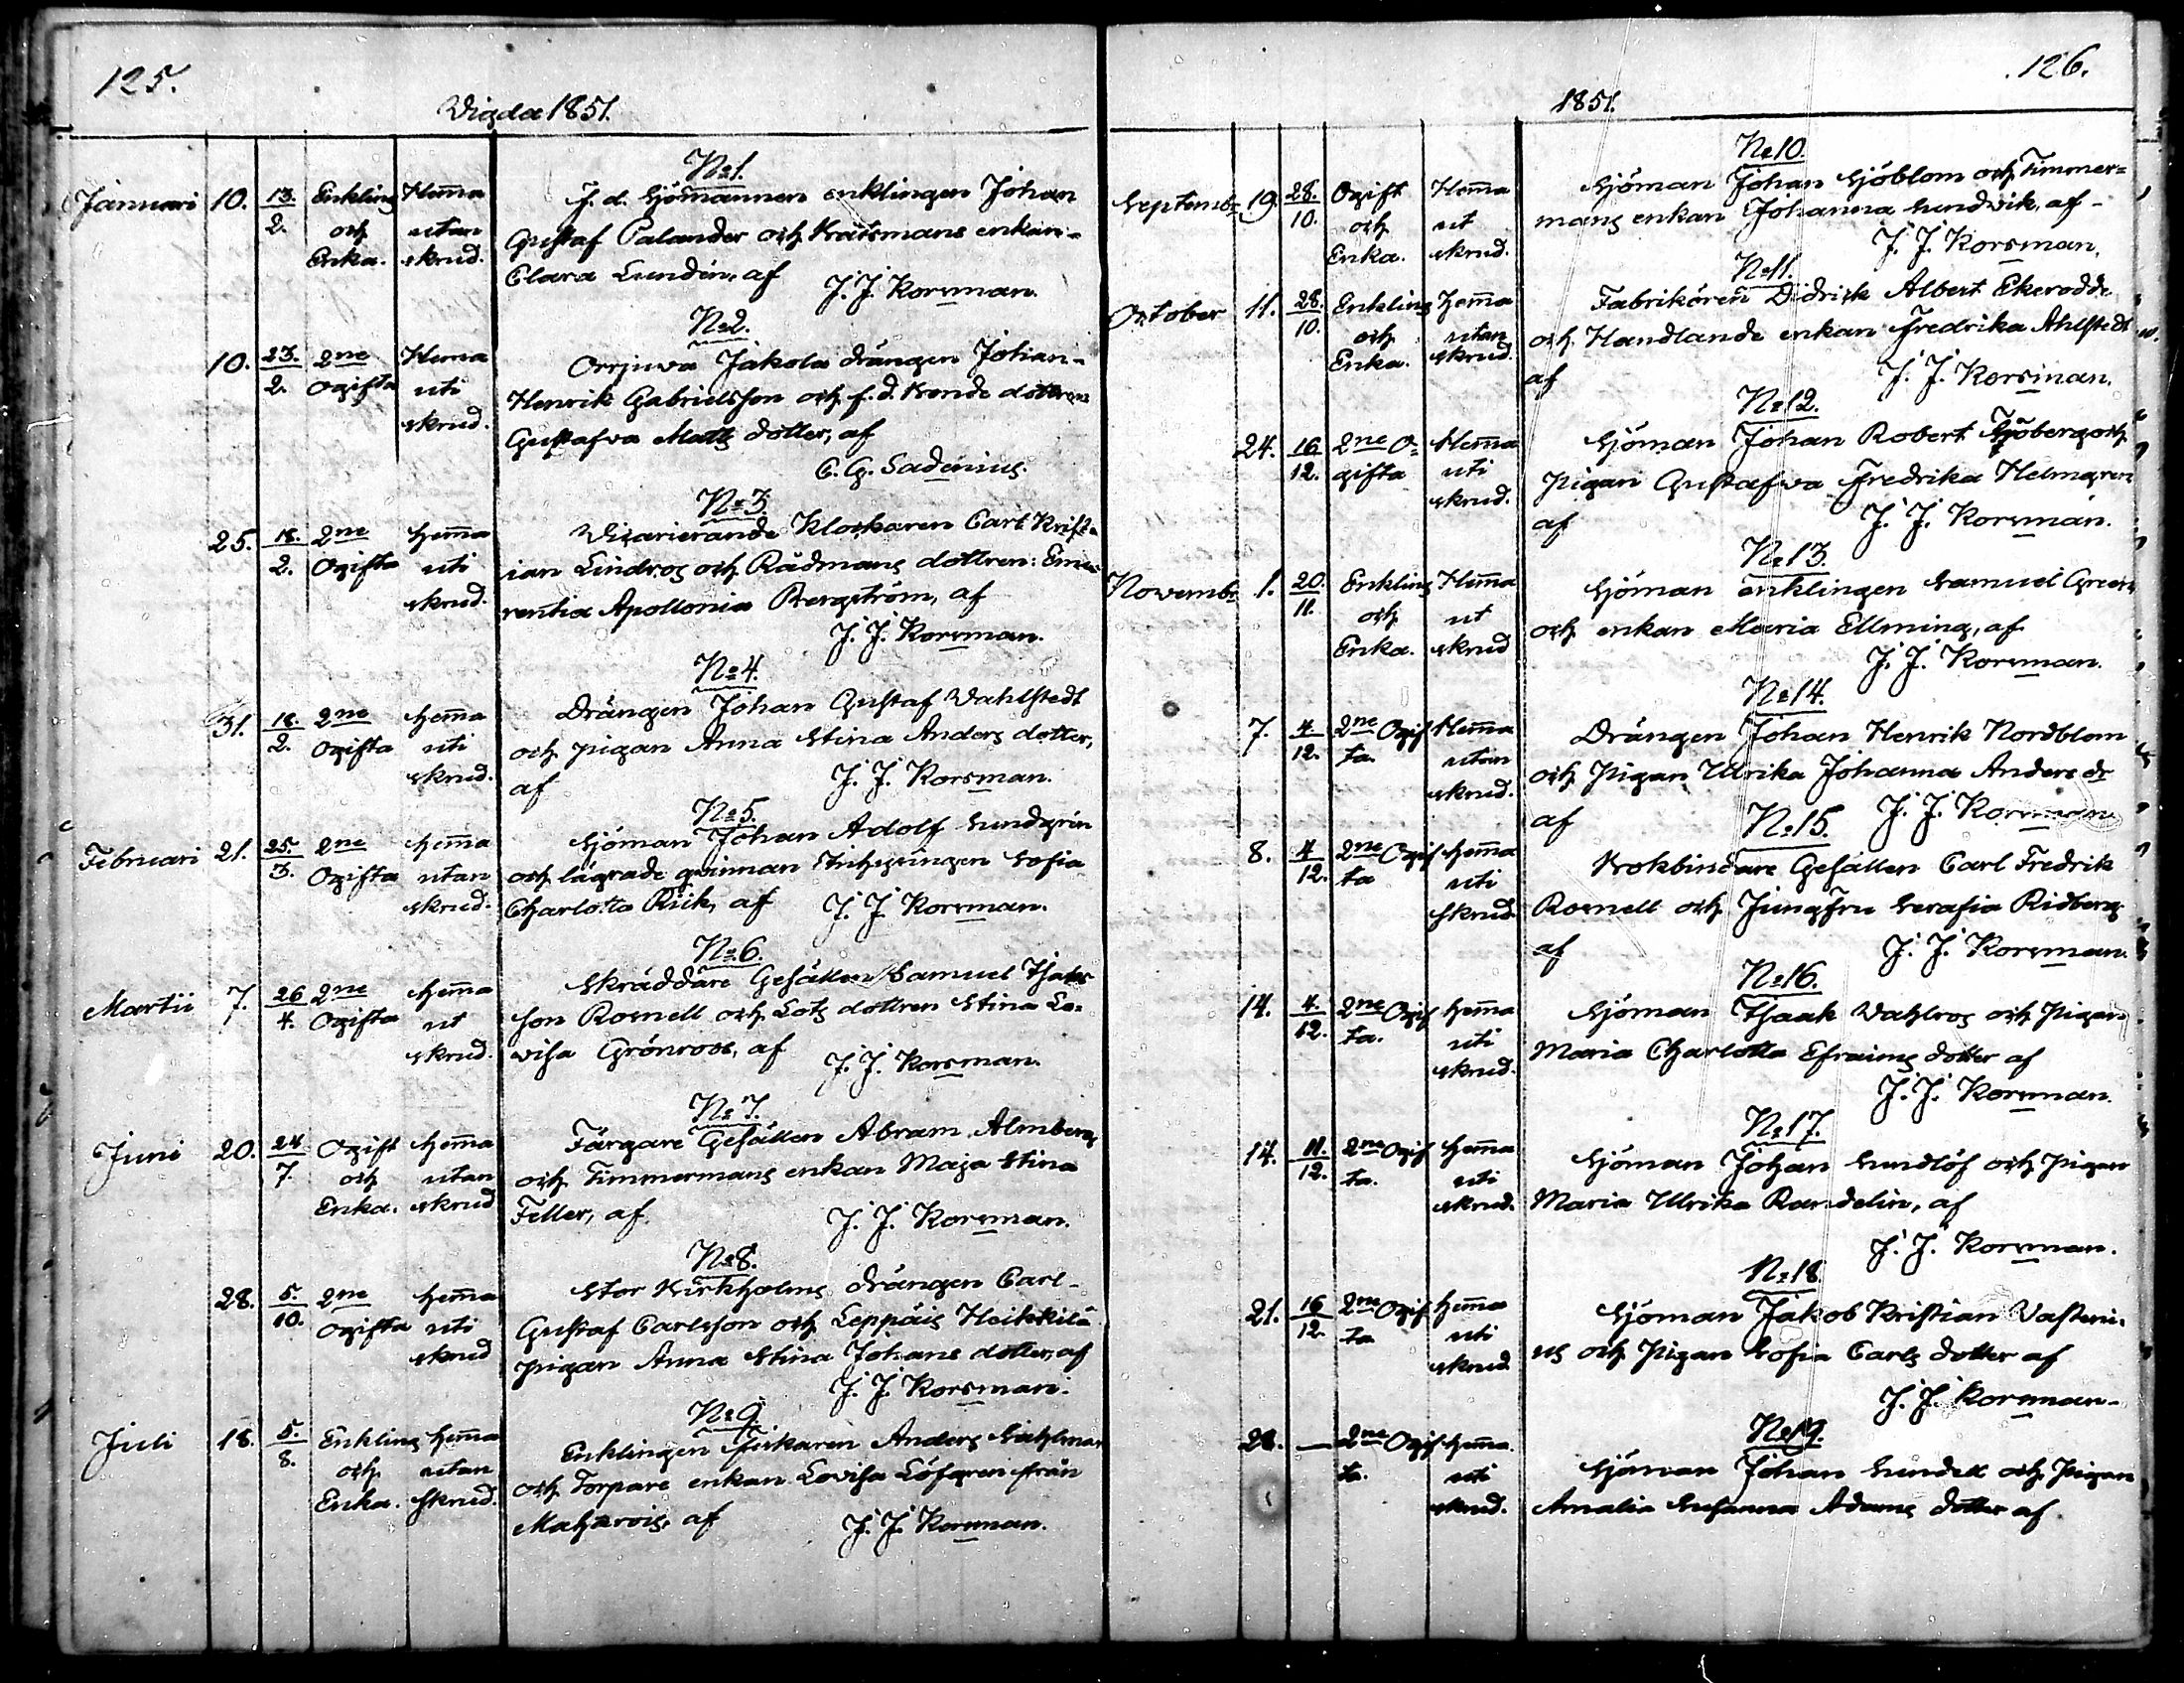 125.
Vigda 1851.
Januari 10. 13. Enkling Hema
2. och utan
Enka. skrud.
No 1.
F. d. Sjömannen enklingen Johan
Gustaf Palander och Kratsmans enkan
Clara Lundén, af
J. J. Korsman.
10. 23. 2ne Hema
2. Ogifta uti
skrud.
No 2.
Orrjuva Jakola drängen Johan
Henrik Gabrielsson och f. d. Bonde dottren
Gustafva Matts dotter, af
C. G. Sadenius.
25. 18. 2ne hema
2. Ogifta uti
skrud.
No 3.
Vicarierande Klockaren Carl Krist-
ian Lindros och Rådmans dottren:
rentia Apollonia Bergström, af
J. J. Korsman.
31. 18. 2ne hema
2. Ogifta uti
skrud.
No 4.
Drängen Johan Gustaf Wahlstedt
och pigan Anna Stina Anders dotter,
af J. J. Korsman.
Februari 21. 25. 2ne hema
3. Ogifta utan
skrud.
No 5.
Sjöman Johan Adolf Lundgrén
och lägrade qvinnan Sofia
Charlotta Riik, af J. J. Korsman.
Martii 7. 26 2ne hema
4. Ogifta ut
skrud.
No 6.
Skräddare Gesällen Samuel Isaks
son Rosnell och Lots dottren Stina Lo-
visa Grönroos, af
J. J. Korsman.
Juni 20. 24 Ogift hema
7. och utan
Enka. skrud
No 7.
Färgare Gesällen Abram Almberg
och Timmermans enkan Maja Stina
Feller, af
J. J. Korsman.
28. 5. 2ne hema
10. Ogifta uti
skrud
No 8.
Stor Kirkholms drängen Carl
Gustaf Carlsson och Leppäis Heikkilä
pigan Anna Stina Johans dotter, af
J. J. Korsman.
Juli 18. 5. Enkling hema
8. och utan
Enka. skrud.
No 9.
Enklingen fiskaren Anders
och Torpare enkan Lovisa Löfgren från
af J. J. Korsman.
126.
1851.
Septembr. 19. 28. Ogift Hema
10. och ut
Enka. skrud.
No 10.
Sjöman Johan Sjöblom och Timmer=
mans enkan Johanna Lundvik, af
J. J. Korsman.
October 11. 28. Enkling hema
10. och utan
Enka. skrud.
No 11.
Fabrikören Didrik Albert Ekerodde
och Handlande enkan Fredrika Ahlstedt
af J. J. Korsman.
24. 16 2ne O- Hema
12. gifta uti
skrud.
No 12.
Sjöman Johan Robert Sjöberg och
pigan Gustafva Fredrika Helmgren
af J. J. Korsman.
Novembr. 1. 20. Enkling Hema
11. och ut
Enka. skrud
No 13.
Sjöman enklingen Samuel Green
och enkan Maria Ellming, af
J. J. Korsman.
7. 4 2ne Ogif Hema
12. ta. utan
skrud.
No 14.
Drängen Johan Henrik Nordblom
och Pigan Ulrika Johanna Anders dr
af J. J. Korsman.
8. 4 2ne Ogif hema
12. ta uti
skrud.
No 15.
Bokbindare Gesällen Carl Fredrik
Rosnell och Jungfru Serafia Ridberg
af J. J. Korsman.
14. 4 2ne Ogif hema
12. ta. uti
skrud.
No 16.
Sjöman Isaak Wahlros och Pigan
Maria Charlotta Efraims dotter af
J. J. Korsman.
14. 11. 2ne Ogif hema
12. ta. uti
skrud.
No 17.
Sjöman Johan Lundlöf och Pigan
Maria Ulrika Randelin, af
J. J. Korsman.
21. 16 2ne Ogif hema
12. ta uti
skrud
No 18.
Sjöman Jakob Kristian Vasteni-
us och Pigan Sofia Carls dotter af
J. J. Korsman.
28. — 2ne Ogif hema.
ta. uti
skrud.
No 19.
Sjöman Johan Lundell och Pigan
Amalia Susanna Adams dotter af